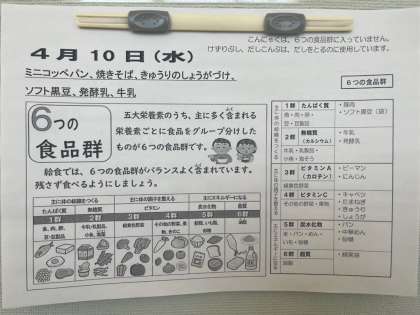 こんにゃくは、6つの食品群に入っていません。
けずりぶし、だしこんぶは、だしをとるのに使用しています。
4月10日(水)
ミニコッペパン、焼きそば、きゅうりのしょうがづけ、
ソフト黒豆、発酵乳、牛乳
6つの食品群
6つの
食品群
五大栄養素のうち、主に多く含まれる
栄養素ごとに食品をグループ分けした
ものが6つの食品群です。
給食では、6つの食品群がバランスよく含まれています。
残さず食べるようにしましょう。
主に体の組織をつくる
主に体の調子を整える
主にエネルギーになる
たんぱく質
無機質
ビタミン
炭水化物
脂質
1群
2群
3群
4群
5群
6群
緑黄色野菜
1群 たんぱく質
魚・肉・卵・
豆・豆製品
・豚肉
・ソフト黒豆(袋)
2群 無機質
(カルシウム)
牛乳・乳製品・
小魚・海そう
・牛乳
・発酵乳
3群 ビタミンA
(カロテン)
緑黄色野菜
・ピーマン
・にんじん
4群 ビタミンC
その他の野菜・果物
・キャベツ
・たまねぎ
・きゅうり
・しょうが
5群 炭水化物
米・パン・めん・
いも・砂糖
・パン
・中華めん
・砂糖
6群 脂質
油脂